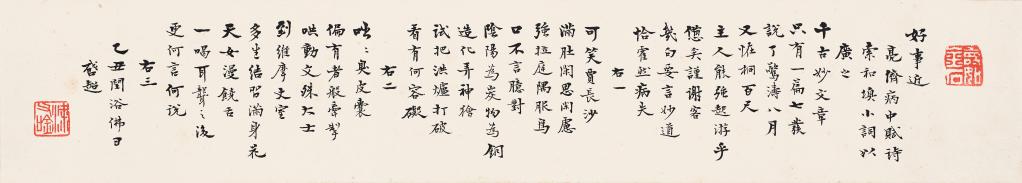 好事近
亮儕病中賦詩
索和填小詞以
廣之
千古妙文章
只有一篇七發
說了驚濤八月
又怪桐百尺
主人能強起游乎
憊矣謹謝客
我向要言妙道
恰霍然病失
右一
可笑賈長沙
滿肚閑思閑慮
強拉庭隅服鳥
口不言臆對
陰陽為炭物為銅
造化弄神獪
試把洪爐打破
看有何容礙
右二
咄咄臭皮囊
偏有者般牽掣
哄動文殊大士
到維摩丈室
多生結習滿身花
天女漫饒舌
一喝耳聾三日後
更何言何說
右三
乙丑閏浴佛日
啓超